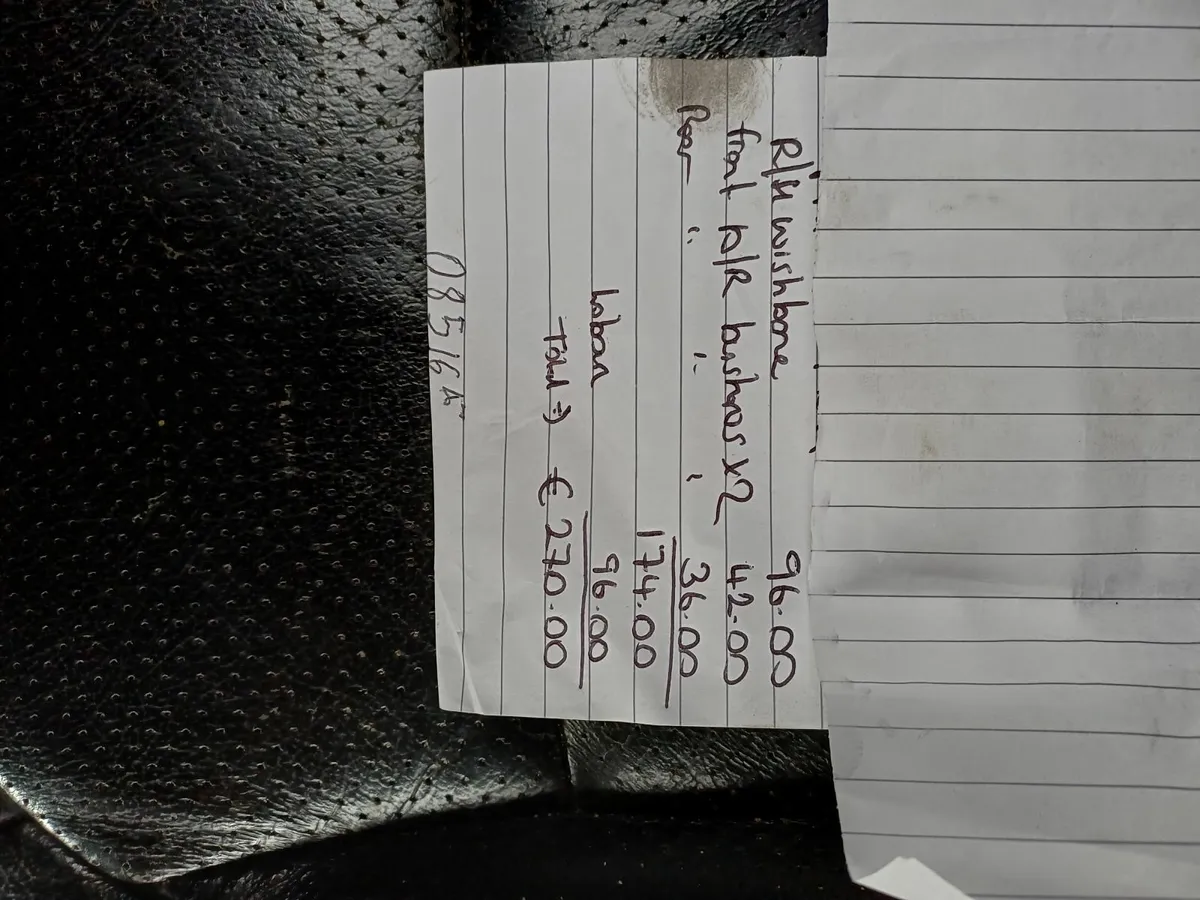 R/H wishbone 96.00
front A/R bushes x2 42.00
Rear " " " 36.00
174.00
Labour 96.00
Total => € 270.00